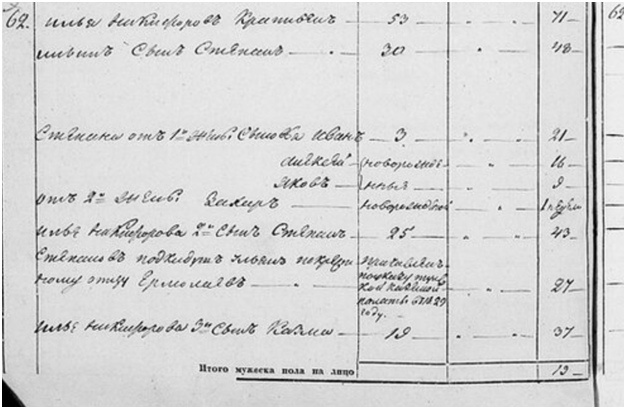 62. Илья Никифоровъ Крапивинъ 53 " 71
Ильинъ Сынъ Степанъ 30 " 48
Степана отъ 1й жены Сыновья Иванъ 3 " 21
Алексей новорожде " 16
Яковъ нные " 9
отъ 2й жены Захаръ новорожденный " 1 недели
Илье Никифорова 2й Сынъ Степанъ 25 " 43
Степановъ подкидышъ Ульянъ по крестному отцу Ермолаевъ " 27
Илье Никифорова 3й Сынъ Казма 19 " 37
Итого мужеска пола на лицо 13
62